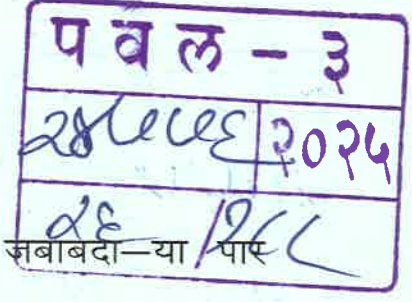 पवल - ३
२४७७६ २०२५
२६ / १८८
जबाबदा-या पार